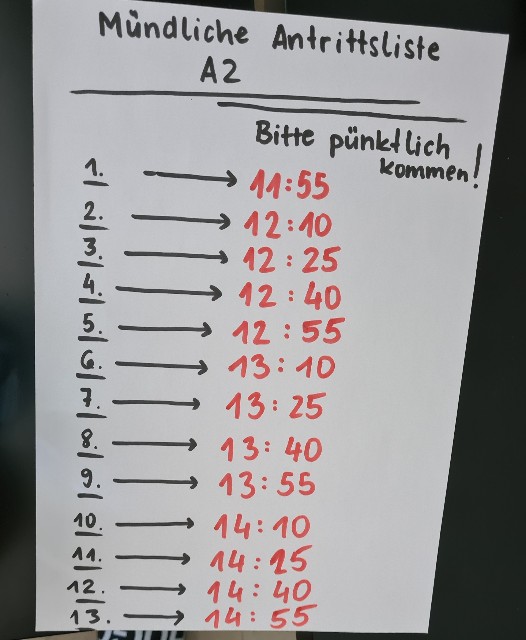 Mündliche Antrittsliste
A2
Bitte pünktlich
kommen!
1. → 11:55
2. → 12:10
3. → 12:25
4. → 12:40
5. → 12:55
6. → 13:10
7. → 13:25
8. → 13:40
9. → 13:55
10. → 14:10
11. → 14:25
12. → 14:40
13. → 14:55